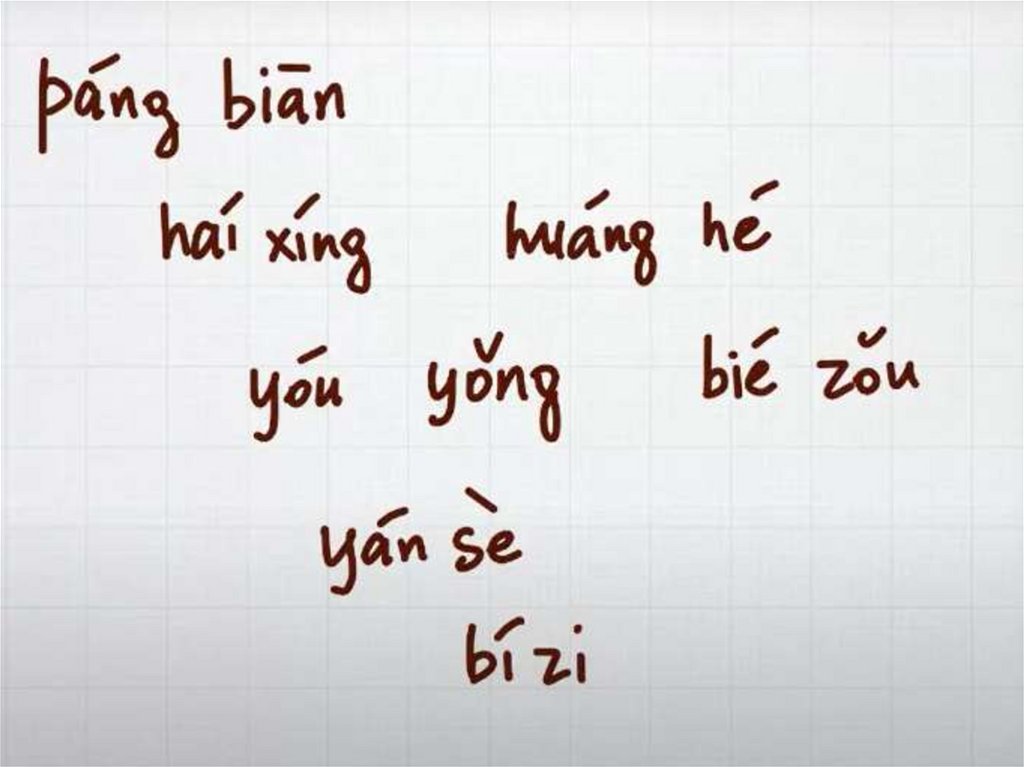 páng biān
haí xíng huáng hé
yóu yǒng bié zǒu
yán sè
bí zi